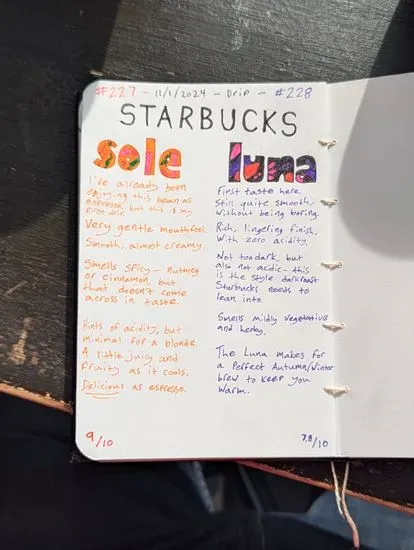 #227 - 11/1/2024 - Drip - #228
STARBUCKS
sole
I've already been
enjoying this bean as
espresso, but this is my
first drip.
Very gentle mouthfeel.
Smooth, almost creamy.
Smells spicy - nutmeg
or cinnamon, but
that doesn't come
across in taste.
Hints of acidity, but
minimal for a blonde.
A little juicy and
fruity as it cools.
Delicious as espresso.
9/10
luna
First taste here.
Still quite smooth,
without being boring.
Rich, lingering finish,
With zero acidity.
Not too dark, but
also not acidic - this
is the style dark roast
Starbucks needs to
lean into.
Smells mildly vegetative
and herby.
The Luna makes for
a Perfect Autumn/Winter
brew to keep you
warm.
7.8/10